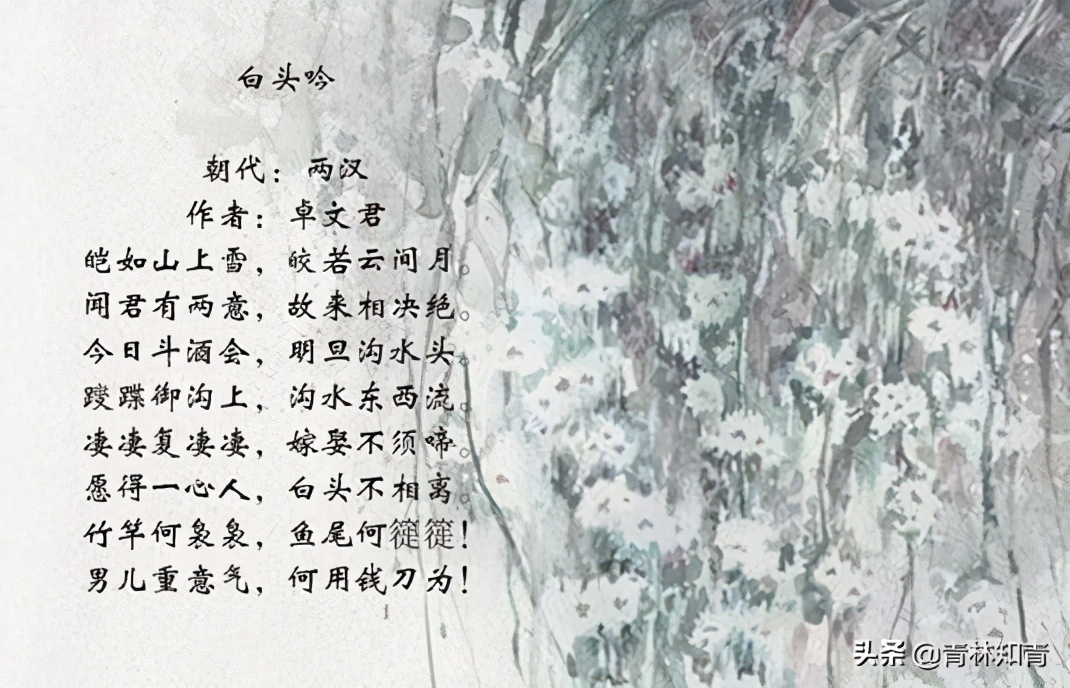 白头吟
朝代：两汉
作者：卓文君
皑如山上雪，皎若云间月。
闻君有两意，故来相决绝。
今日斗酒会，明旦沟水头。
躞蹀御沟上，沟水东西流。
凄凄复凄凄，嫁娶不须啼。
愿得一心人，白头不相离。
竹竿何袅袅，鱼尾何簁簁！
男儿重意气，何用钱刀为！
头条 @青林知青